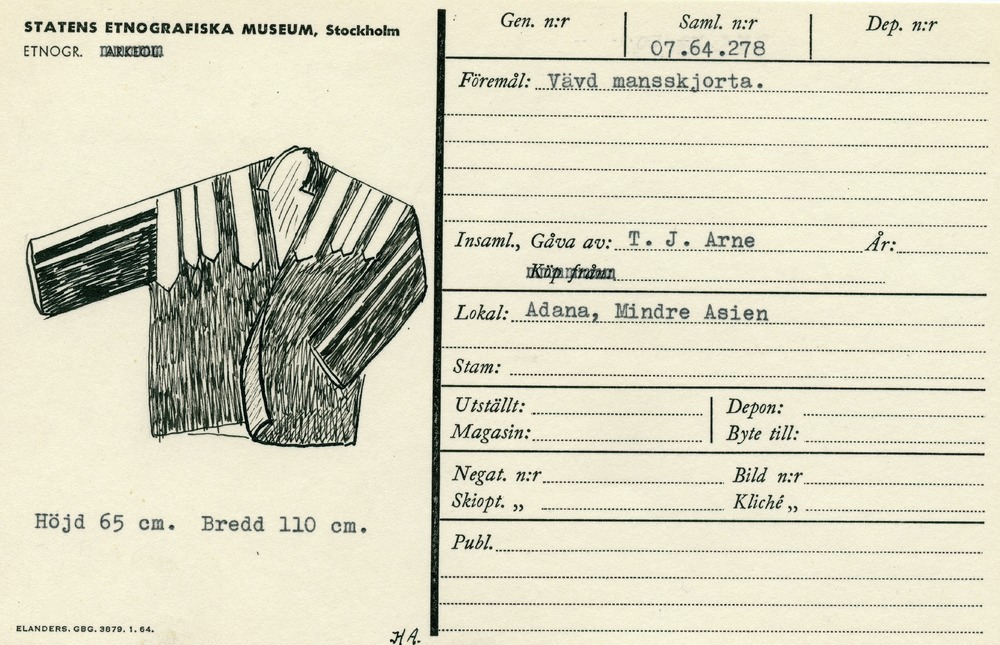 STATENS ETNOGRAFISKA MUSEUM, Stockholm
ETNOGR. ARKEOL.
Höjd 65 cm. Bredd 110 cm.
ELANDERS. GBG. 3879. 1. 64.
HA.
Gen. n:r Saml. n:r Dep. n:r
07.64.278
Föremål: Vävd mansskjorta.
Insaml., Gåva av: T. J. Arne År:
Köp från
Lokal: Adana, Mindre Asien
Stam:
Utställt: Depon:
Magasin: Byte till:
Negat. n:r Bild n:r
Skiopt. „ Kliché „
Publ.